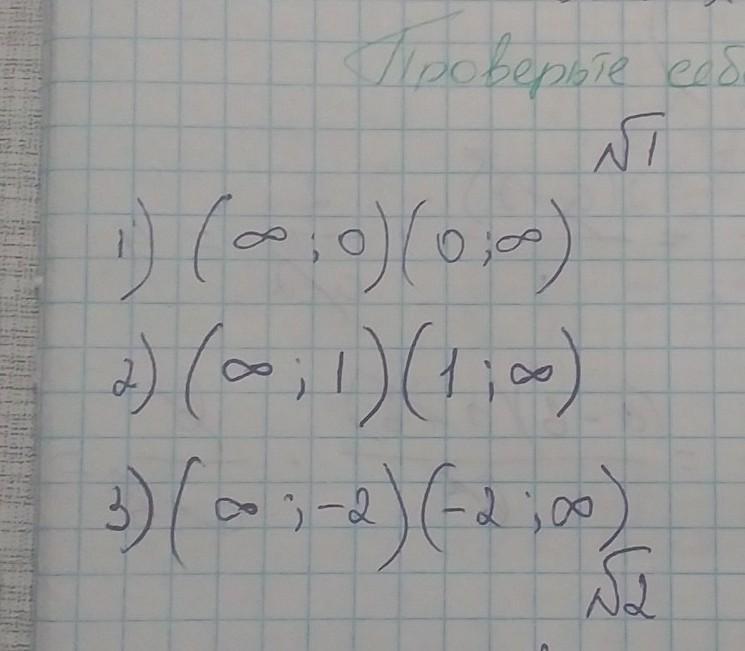 Проверьте себ
√1
1) (∞ ; 0)(0 ; ∞)
2) (∞ ; 1)(1 ; ∞)
3) (∞ ; -2)(-2 ; ∞)
√2